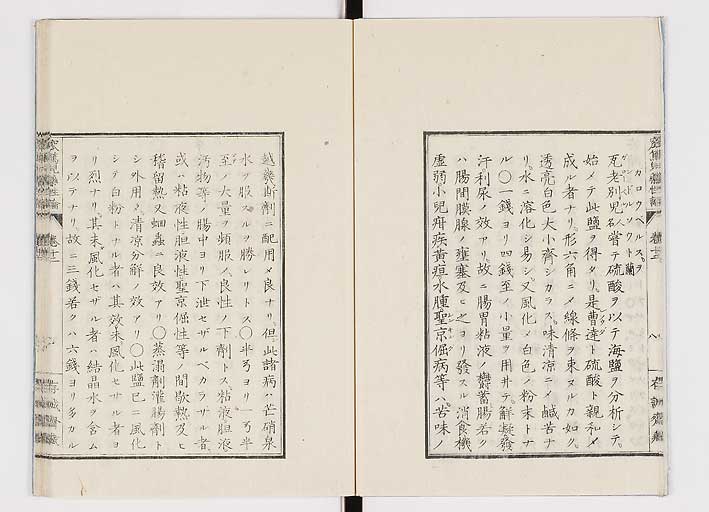 カロウベルスヲ
瓦老別児名人嘗テ硫酸ヲ以テ海鹽ヲ分析シテ。
始メテ此鹽ヲ得タリ。是曹達ト硫酸ト親和メ
成ル者ナリ。形六角ニメ線條ヲ束ヌルカ如ク。
透亮白色大小齊シカラス。味清凉ニメ鹹苦ナ
リ。水ニ溶化シ易シ。又風化メ白色ノ粉末トナ
ル〇一錢ヨリ四錢至ノ小量ヲ用井テ。解凝發
汗利尿ノ效アリ。故ニ腸胃粘液ノ鬱蓄腸若ク
ハ腸間膜腺ノ壅塞及ヒ之ヨリ發スル消食機
虚弱小児疳疾黄疸水腫聖京倔病等ハ。苦味ノ
越幾斯劑ニ配用メ良ナリ。但此諸病ハ芒硝泉
水ヲ服スルヲ勝レリトス〇半ヲヨリ一ヲ半
至ノ大量ヲ頻服メ。良性ノ下劑トス。粘液胆液
汚物等ノ腸中ヨリ下泄セザルベカラサル者。
或ハ粘液性胆液性聖京倔性等ノ間歇熱及ヒ
稽留熱又蛔蟲ニ良效アリ〇蒸溻劑灌腸劑ト
シ外用メ清凉分解ノ效アリ〇此鹽已ニ風化
シテ白粉トナル者ハ其效未風化セサル者ヨ
リ烈ナリ。其未風化セザル者ハ結晶水ヲ含ム
ヲ以テナリ。故ニ三錢若クハ六錢ヨリ多カル